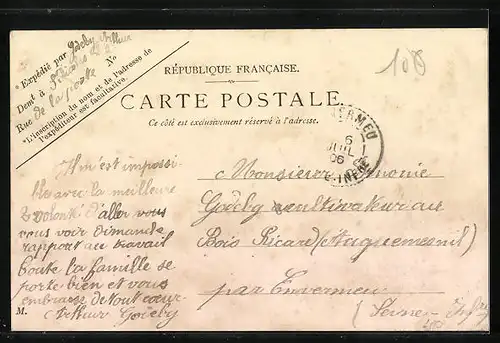 * Expédié par Godeby Arthur
Demt à St Nicolas
Rue de la poste No
*L'inscription du nom et de l'adresse de
l'expéditeur est facultative.
108
RÉPUBLIQUE FRANÇAISE.
CARTE POSTALE
Ce côté est exclusivement réservé à l'adresse.
ENVERMEU
6
JUIL
06
INFRE
Il m'est impossi
ble avec la meilleure
volonté d'aller vous
vous voir dimande
rapport au travail
toute la famille se
porte bien et vous
embrasse de tout cœur
Arthur Godeby
M.
Monsieur
Godeby cultivateur au
Bois Ricard (Auquemesnil)
par Envermeu
(Seine-Infre